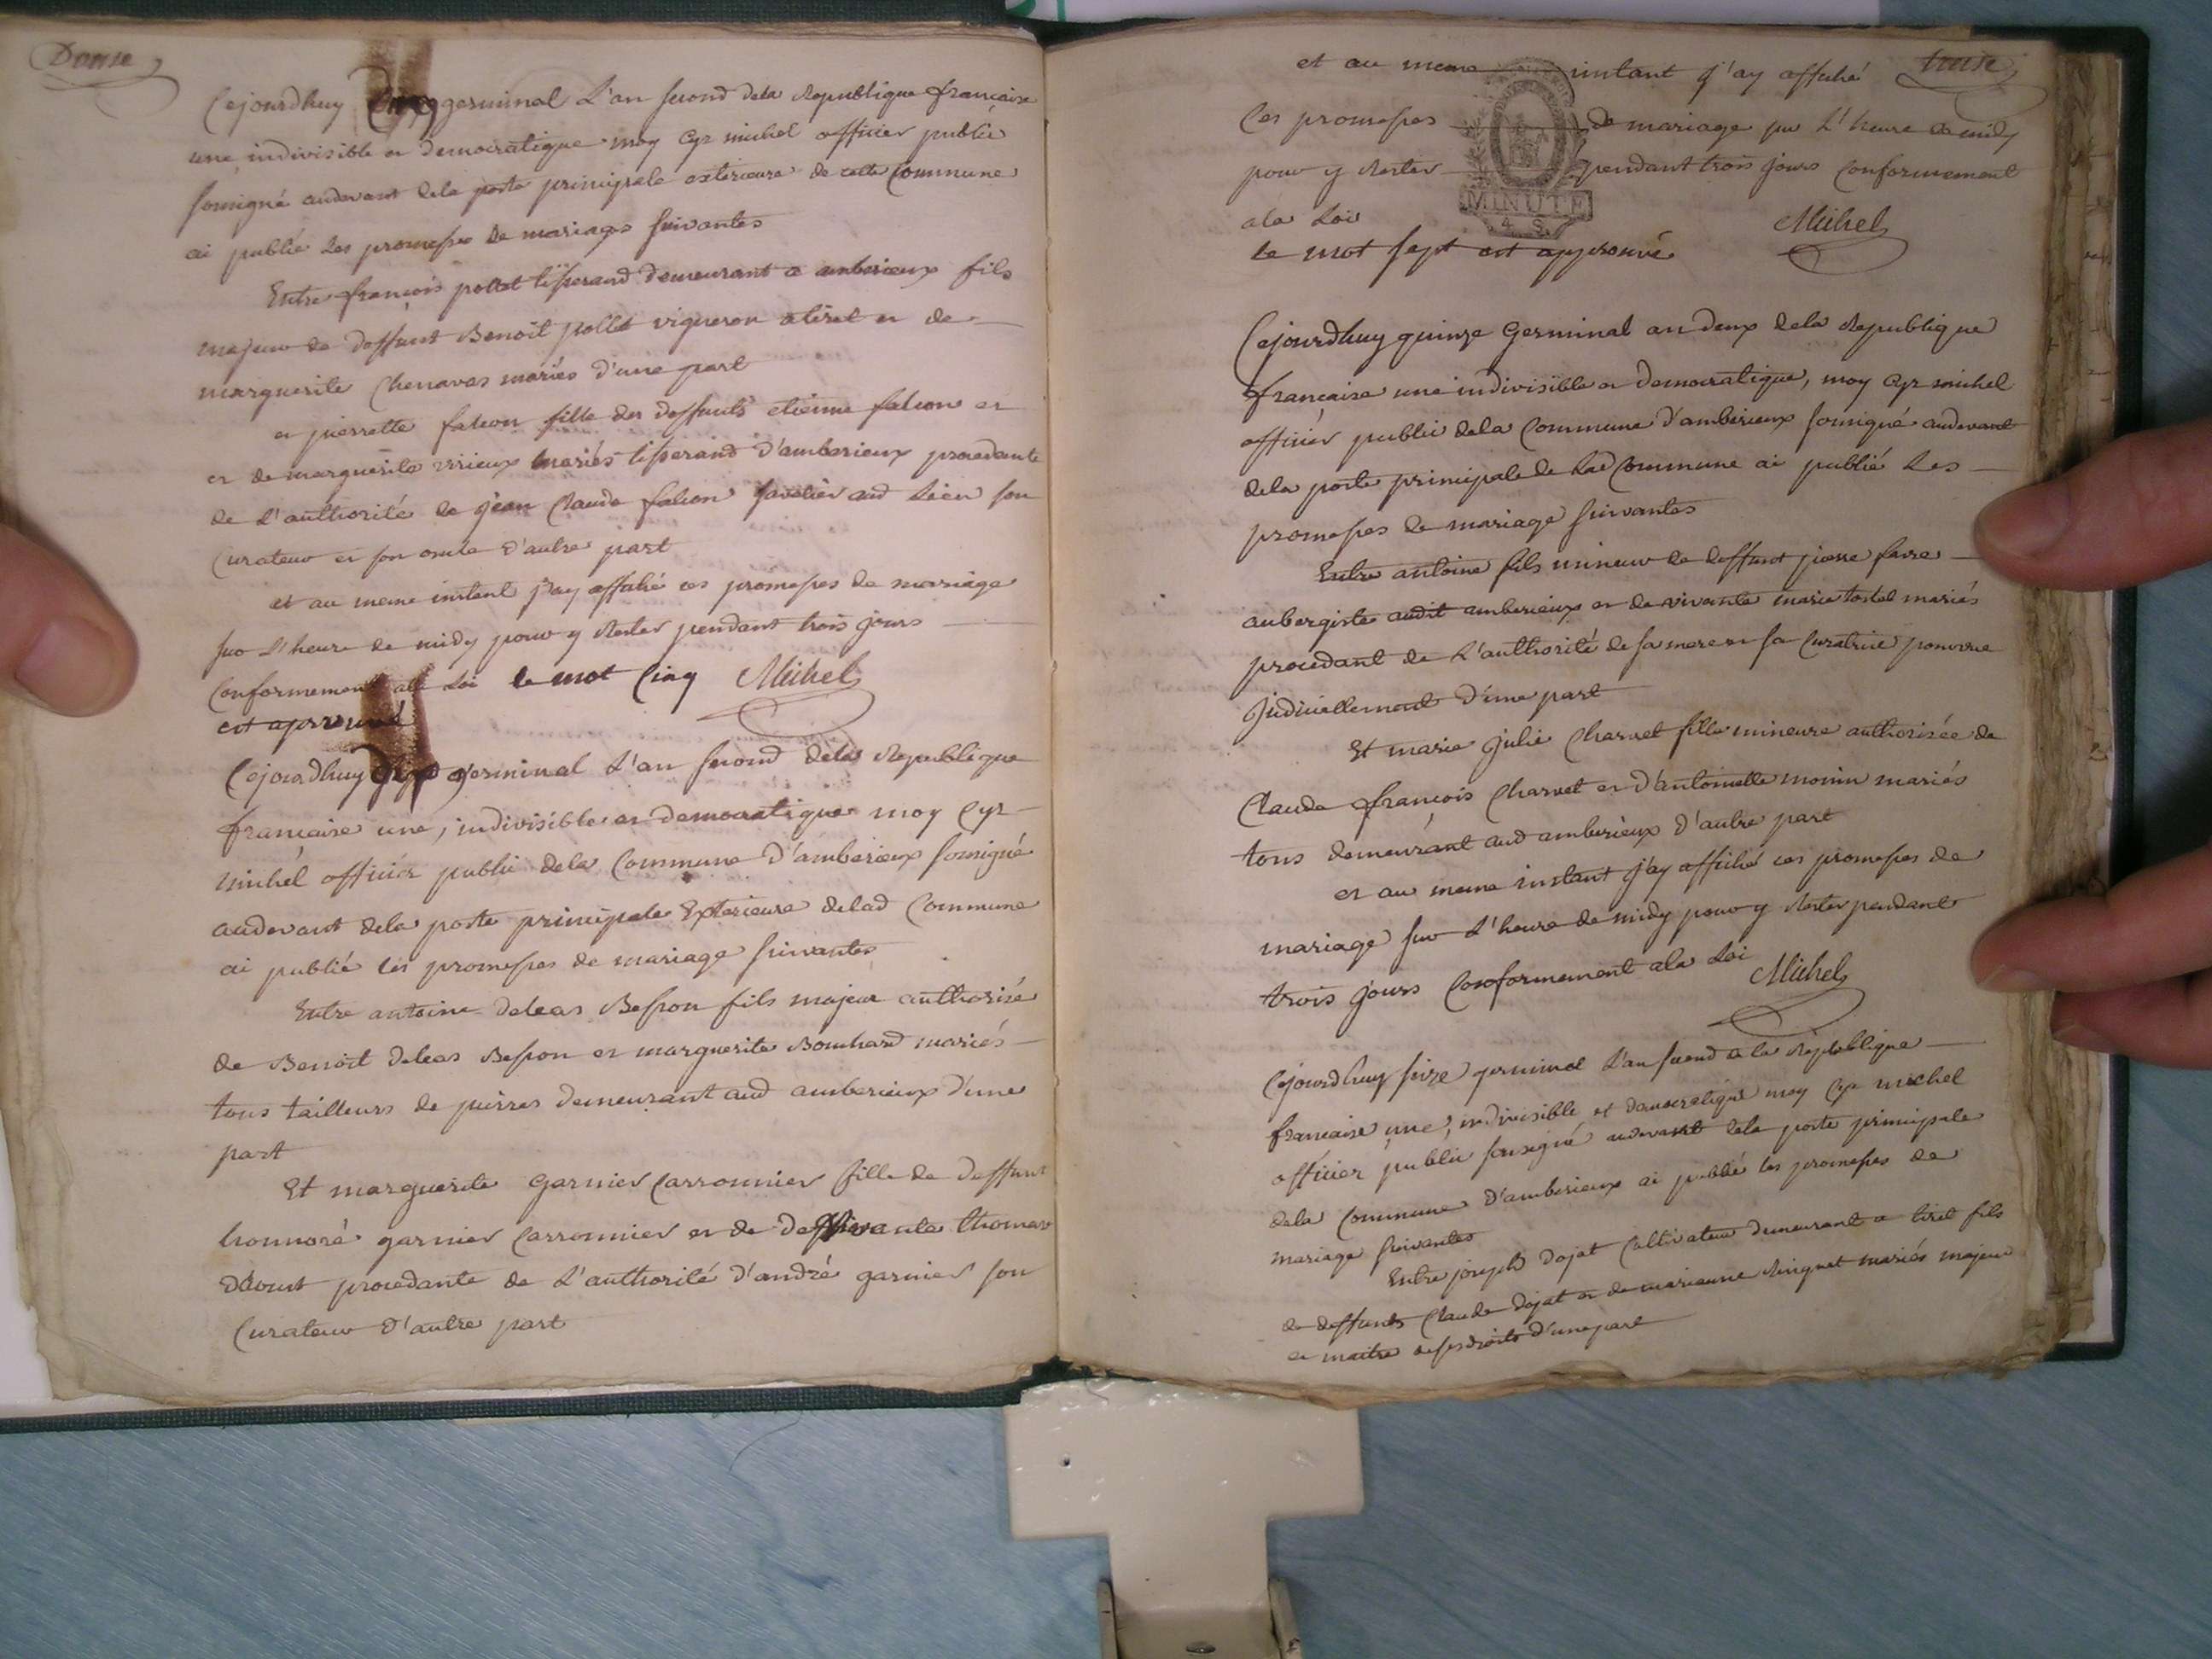 Douse
Cejourdhuy Cinq germinal L'an second dela Republique française
une indivisible et democratique moy Cyr michel officier public
sousigné audevant dela porte principale exterieure de cette Commune
ai publié les promesses de mariages suivantes
Entre françois pollet tisserand demeurant a amberieux fils
majeur de deffunt Benoit pollet vigneron a tiret et de
marguerite Chenavas mariés d'une part
et pierrette falcon fille des deffunts etienne falcon et
et de marguerite mariés tisserand d'amberieux procedante
de L'authorité de jean Claude falcon aud Lieu son
Curateur et son oncle d'autre part
et au meme instant j'ay affiché ces promesses de mariage
sur L'heure de midy pour y Rester pendant trois jours
Conformement ala Loi le mot Cinq Michel
est approuvé
Cejourdhuy sept germinal L'an second dela Republique
française une, indivisible et democratique moy Cyr
michel officier public dela Commune d'amberieux sousigné
audevant dela porte principale Exterieure delad Commune
ai publié les promesses de mariage suivantes
Entre antoine deleas Besson fils majeur authorisé
de Benoit deleas Besson et marguerite Bouchard mariés
tous tailleurs de pierres demeurant aud amberieux d'une
part
Et marguerite garnier Carronnier fille de deffunt
honnoré garnier Carronnier et de vivante
procedante de L'authorité d'andré garnier son
Curateur d'autre part
et au meme instant j'ay affiché treise
Ces promesses de mariage sur L'heure de midy
pour y Rester pendant trois jours Conformement
ala Loi
MINUTE
4. S.
Michel
le mot sept est approuvé
Cejourdhuy quinze Germinal an deux dela Republique
française une indivisible et democratique, moy Cyr michel
officier public dela Commune d'amberieux sousigné audevant
dela porte principale de Lad Commune ai publié Les
promesses de mariage suivantes
Entre antoine fils mineur de deffunt pierre favre
aubergiste audit amberieux et de vivante marie tostel mariés
procedant de L'authorité de sa mere et sa Curatrice pourvue
judiciellement d'une part
Et marie julie Charvet fille mineure authorisée de
Claude françois Charvet et d'antoinette monin mariés
tous demeurant aud amberieux d'autre part
et au meme instant j'ay affiché ces promesses de
mariage sur L'heure de midy pour y Rester pendant
trois jours Conformement ala Loi
Michel
Cejourdhuy seize germinal L'an second de la Republique
francaise une, indivisible et democratique moy Cyr michel
officier public sousigné audevant dela porte principale
dela Commune d'amberieux ai publié les promesses de
mariage suivantes
Entre joseph dojat Cultivateur demeurant a tiret fils
de deffunts Claude dojat et de marianne Ringuet mariés majeur
et maitre de ses droits d'une part